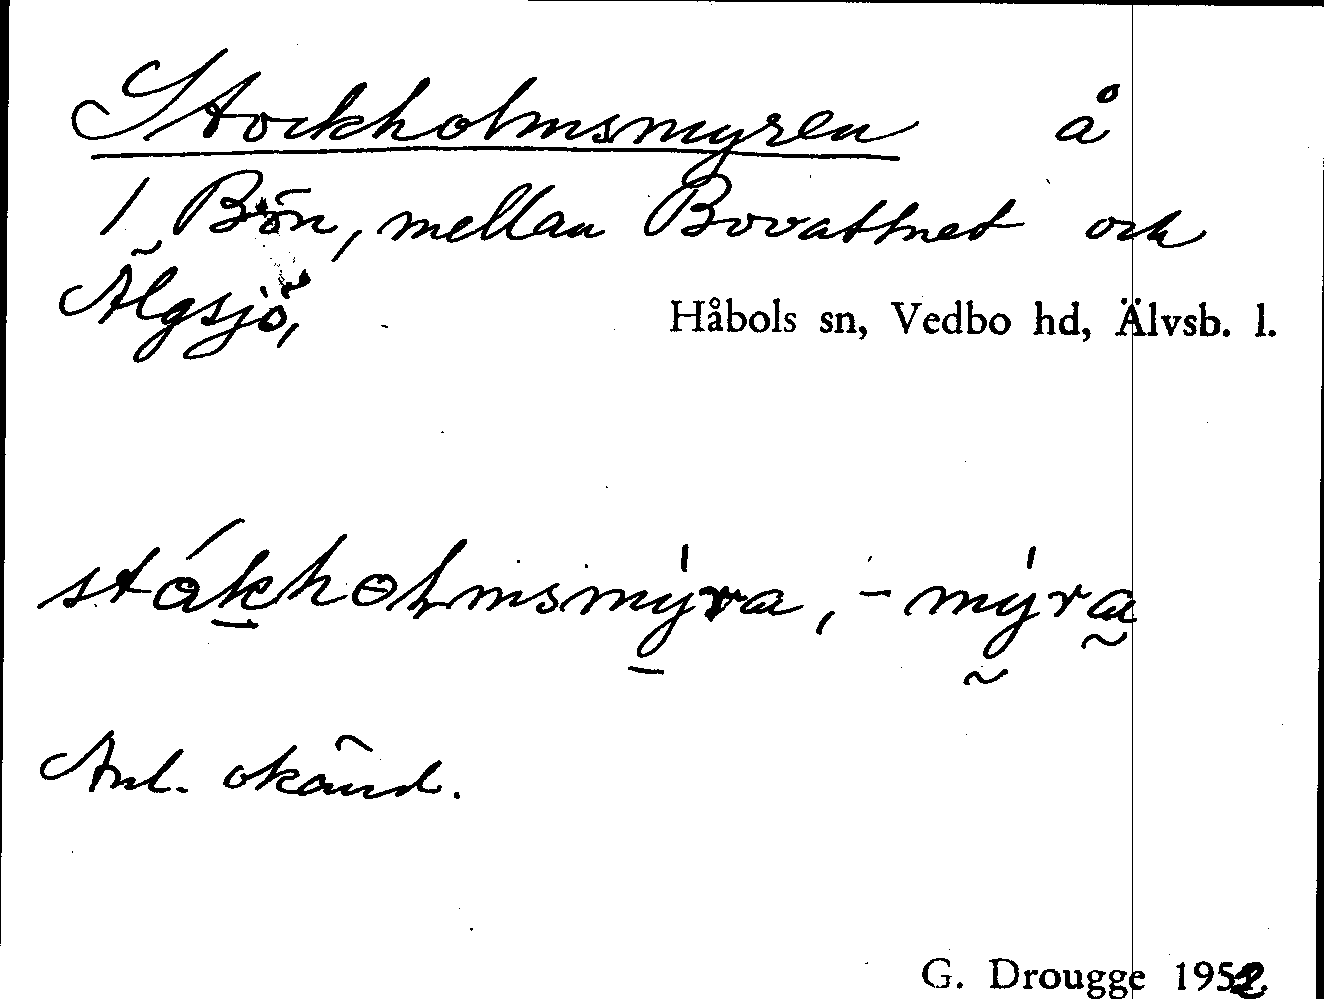 Stockholmsmyren å
1 Bön, mellan Bovattnet och
Älgsjö,
Håbols sn, Vedbo hd, Älvsb. l.
stákhołmsmy̍ra, -my̍ra
Anl. okänd.
G. Drougge 1952